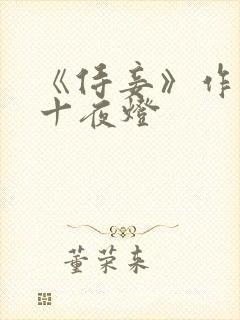 《侍妾》作
十夜燈
董荣来